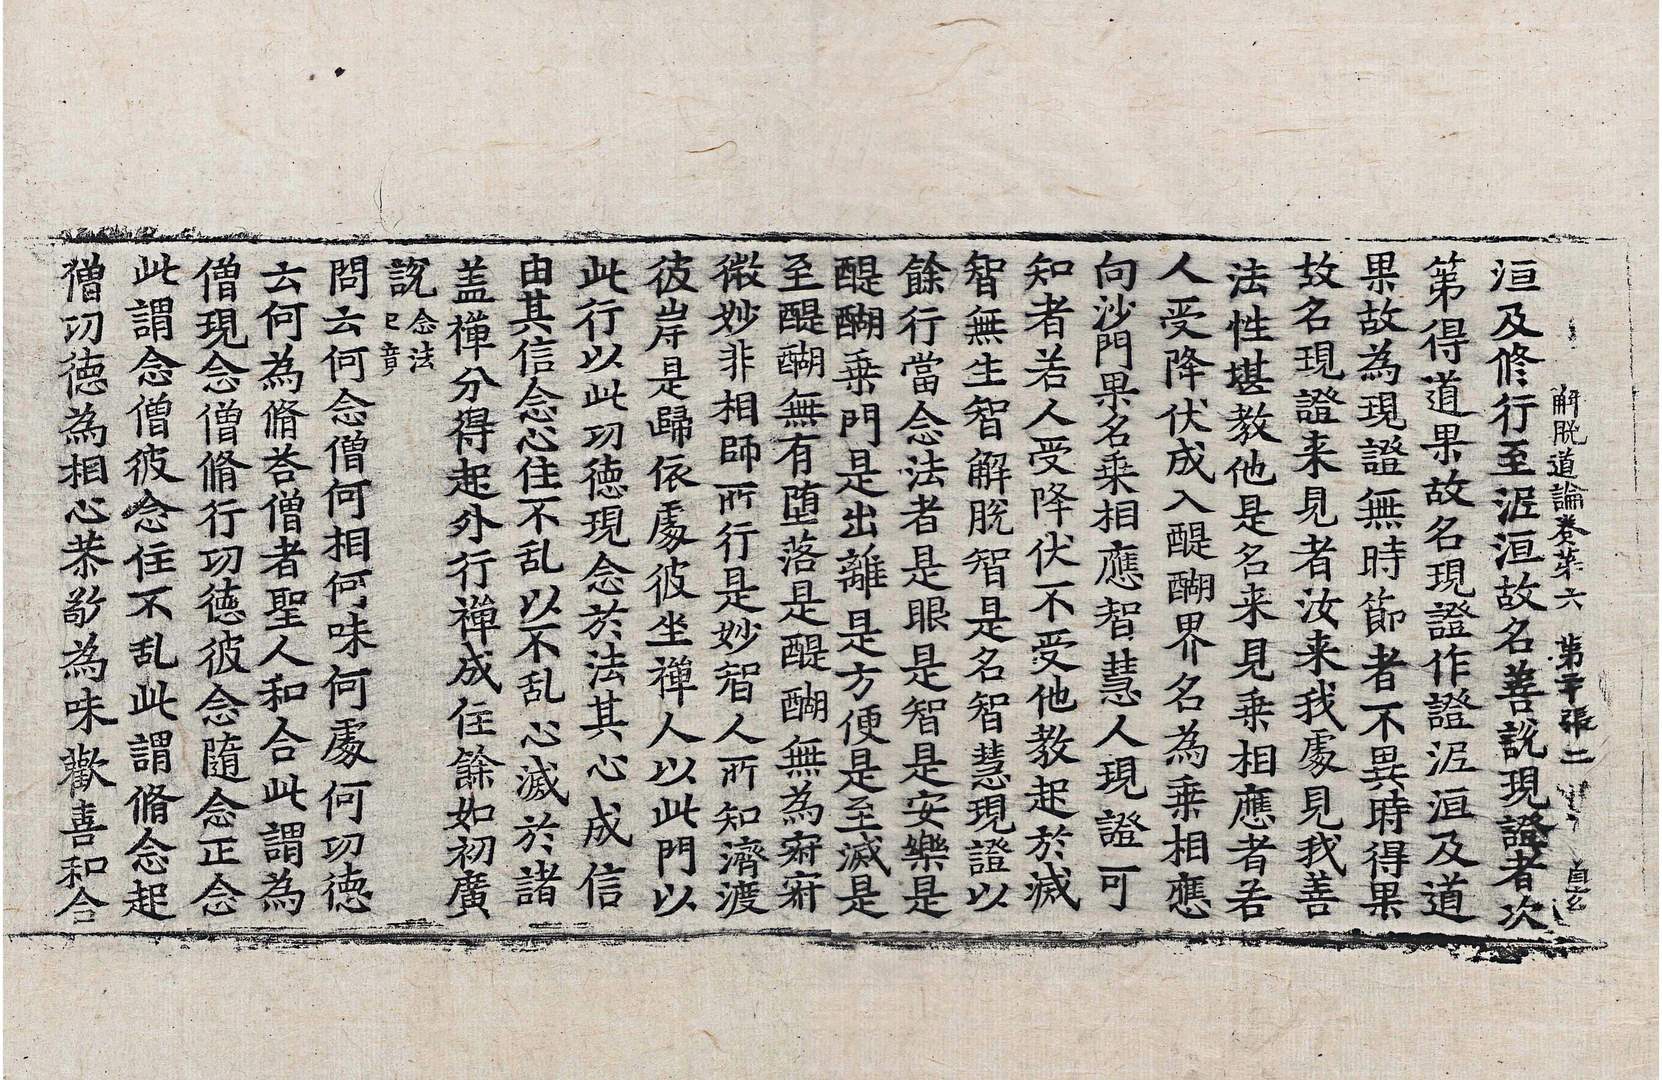 解脫道論卷第六 第二十張 二
洹及修行至泥洹故名善說現證者次
第得道果故名現證作證泥洹及道
果故為現證無時節者不異時得果
故名現證来見者汝来我處見我善
法性堪教他是名来見乗相應者若
人受降伏成入醍醐界名為乗相應
向沙門果名乗相應智慧人現證可
知者若人受降伏不受他教起於滅
智無生智解脫智是名智慧現證以
餘行當念法者是眼是智是安樂是
醍醐乗門是出離是方便是至滅是
至醍醐無有堕落是醍醐無為寂寂
微妙非相師所行是妙智人所知濟渡
彼岸是歸依處彼坐禪人以此門以
此行以此功德現念於法其心成信
由其信念心住不乱以不乱心滅於諸
盖禪分得起外行禪成住餘如初廣
說念法已竟
問云何念僧何相何味何處何功徳
云何為脩荅僧者聖人和合此謂為
僧現念僧脩行功徳彼念隨念正念
此謂念僧彼念住不乱此謂脩念起
僧功徳為相心恭敬為味歡喜和合